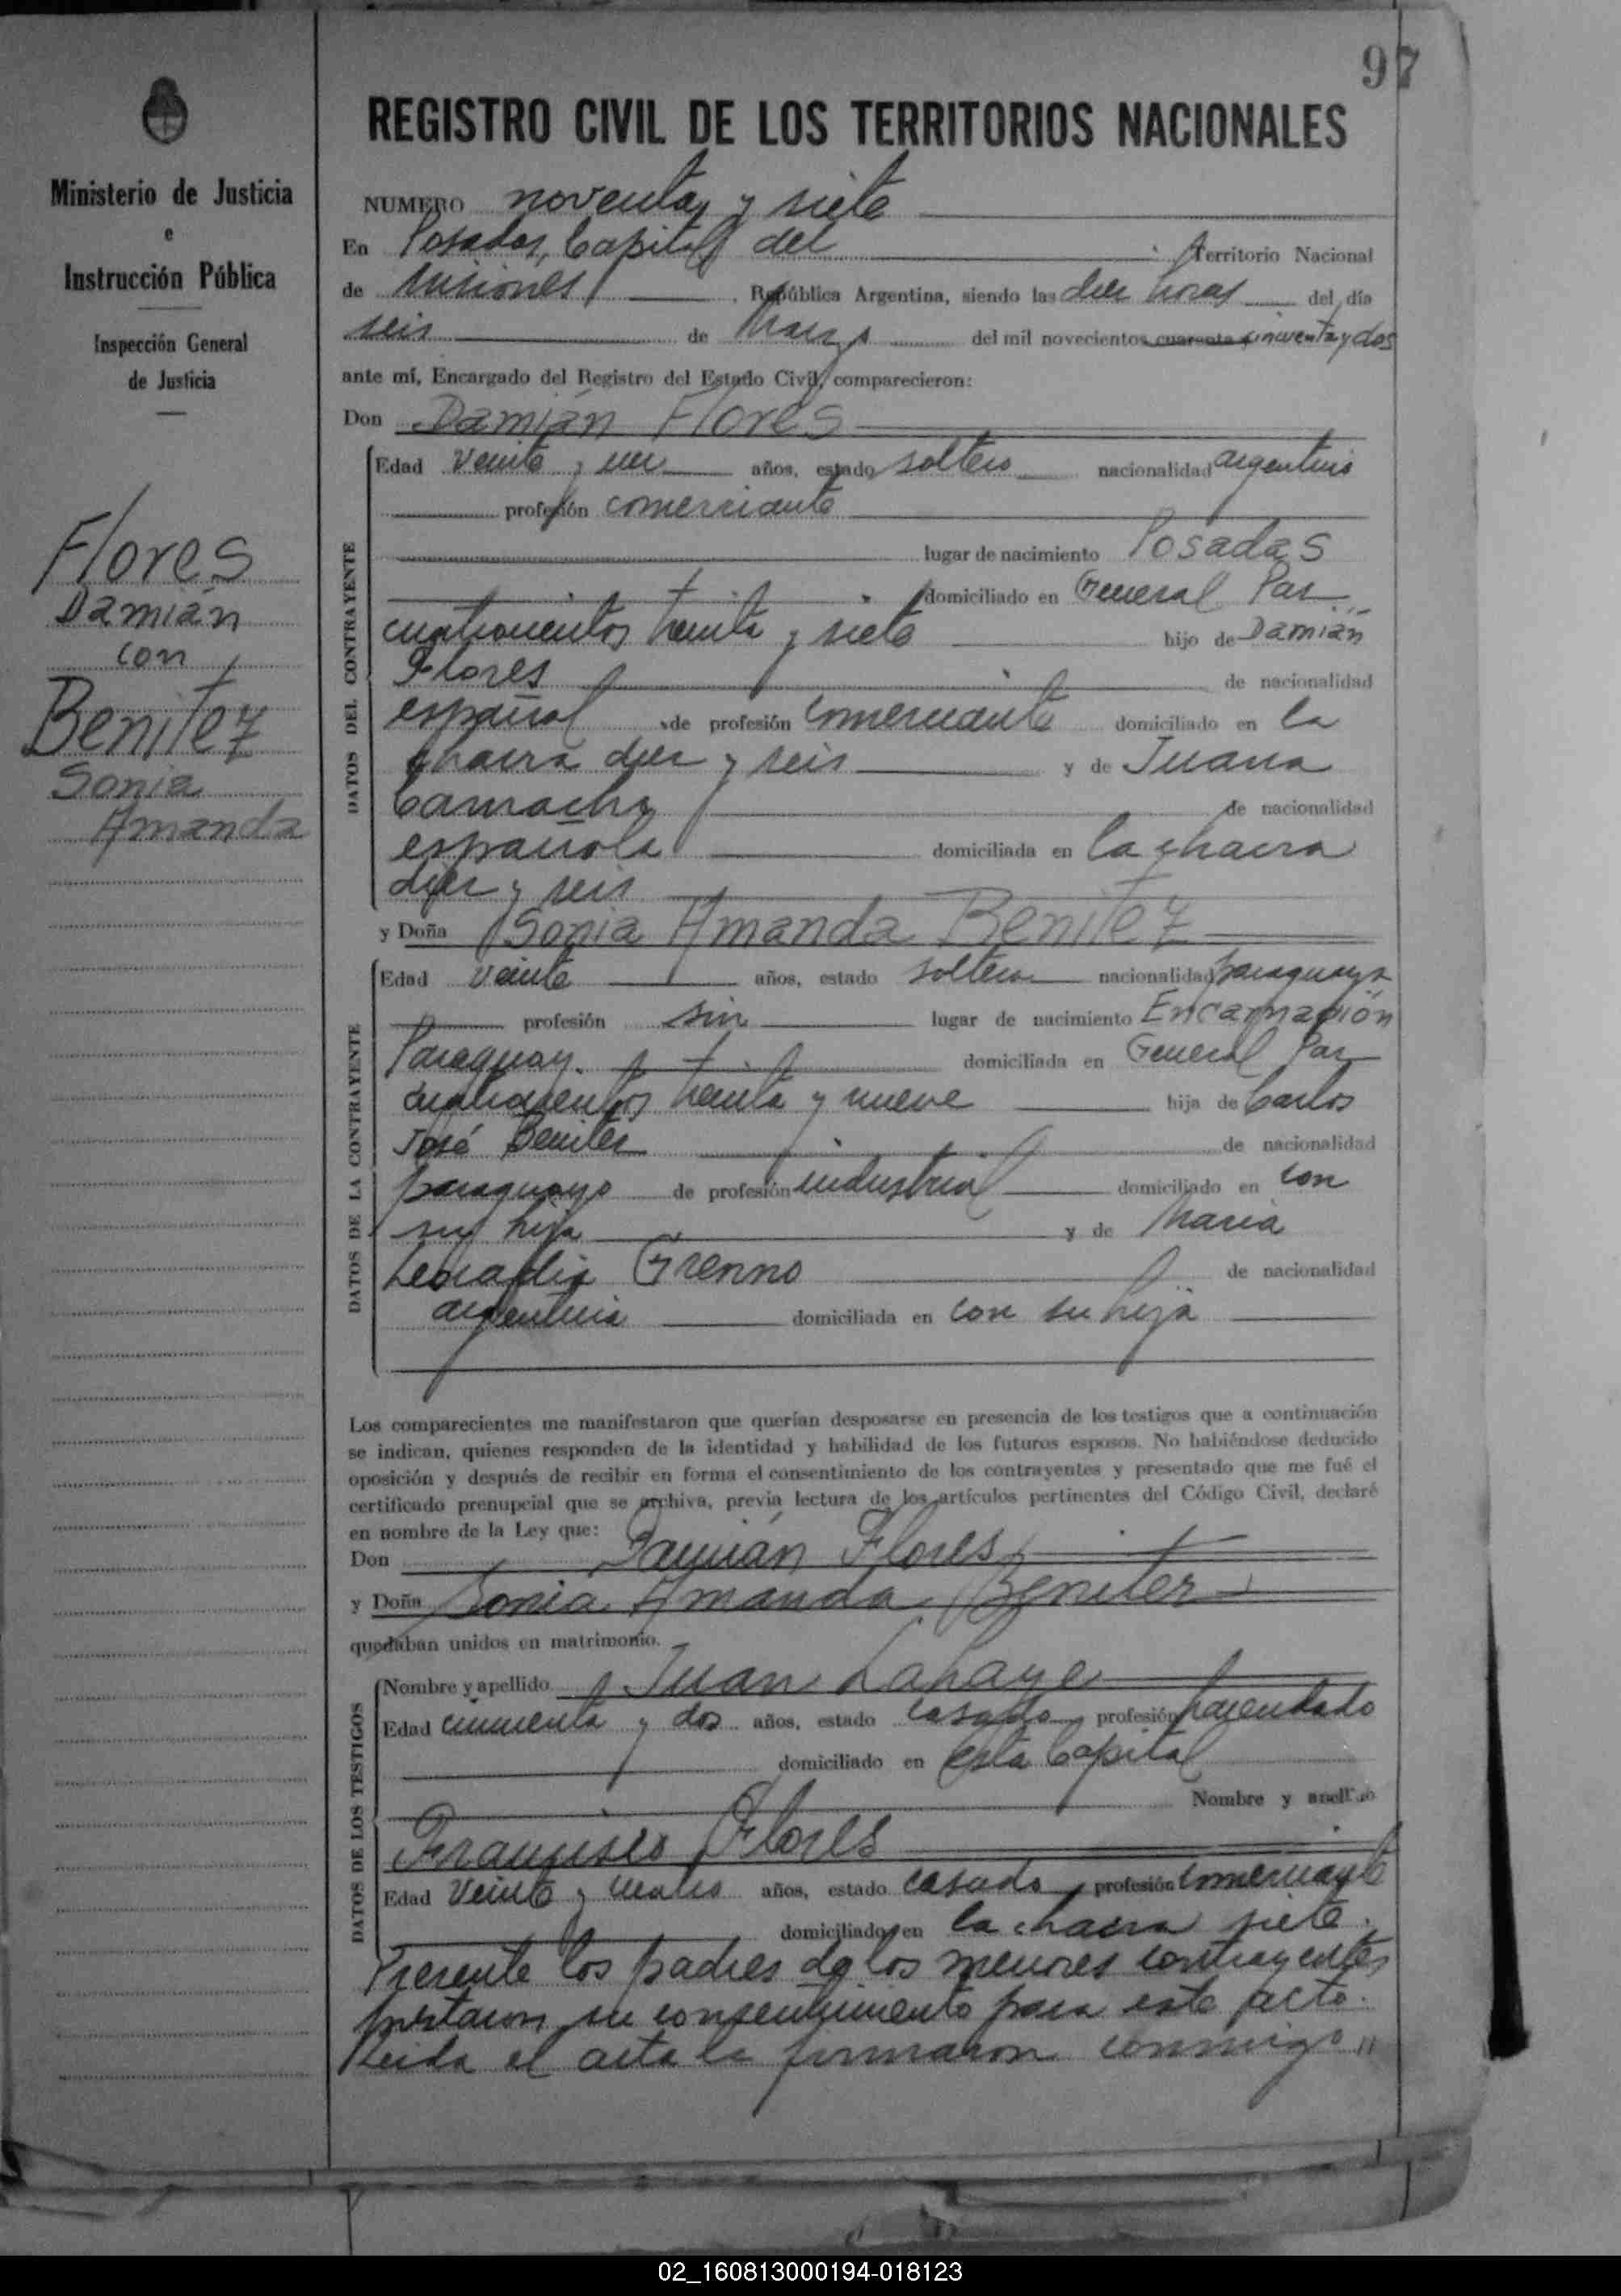 97
REGISTRO CIVIL DE LOS TERRITORIOS NACIONALES
Ministerio de Justicia
e
Instrucción Pública
Inspección General
de Justicia
Flores
Damián
con
Benitez
Sonia
Amanda
NUMERO noventa y siete
En Posadas, Capital del Territorio Nacional
de Misiones, República Argentina, siendo las diez horas del día
seis de Marzo del mil novecientos cuarenta cincuenta y dos
ante mí, Encargado del Registro del Estado Civil, comparecieron:
Don Damián Flores
DATOS DEL CONTRAYENTE
Edad veinte y un años, estado soltero nacionalidad argentino
profesión comerciante
lugar de nacimiento Posadas
domiciliado en General Paz
cuatrocientos treinta y siete hijo de Damián
Flores de nacionalidad
español de profesión comerciante domiciliado en la
chacra diez y seis y de Juana
Camacho de nacionalidad
española domiciliada en la chacra
diez y seis
y Doña Sonia Amanda Benitez
DATOS DE LA CONTRAYENTE
Edad veinte años, estado soltera nacionalidad paraguaya
profesión sin lugar de nacimiento Encarnación
Paraguay. domiciliada en General Paz
cuatrocientos treinta y nueve hija de Carlos
José Benitez de nacionalidad
paraguayo de profesión industrial domiciliado en con
su hija y de María
Leocadia Grenno de nacionalidad
argentina domiciliada en con su hija
Los comparecientes me manifestaron que querían desposarse en presencia de los testigos que a continuación
se indican, quienes responden de la identidad y habilidad de los futuros esposos. No habiéndose deducido
oposición y después de recibir en forma el consentimiento de los contrayentes y presentado que me fué el
certificado prenupcial que se archiva, previa lectura de los artículos pertinentes del Código Civil, declaré
en nombre de la Ley que:
Don Damián Flores
y Doña Sonia Amanda Benitez
quedaban unidos en matrimonio.
DATOS DE LOS TESTIGOS
Nombre y apellido Juan Lahaye
Edad cincuenta y dos años, estado casado profesión hacendado
domiciliado en esta Capital
Nombre y apellido
Francisco Flores
Edad veinte y cuatro años, estado casado profesión comerciante
domiciliado en la chacra siete.
Presente los padres de los menores contrayentes
prestaron su consentimiento para este acto.
Leida el acta la firmaron conmigo "
02_160813000194-018123